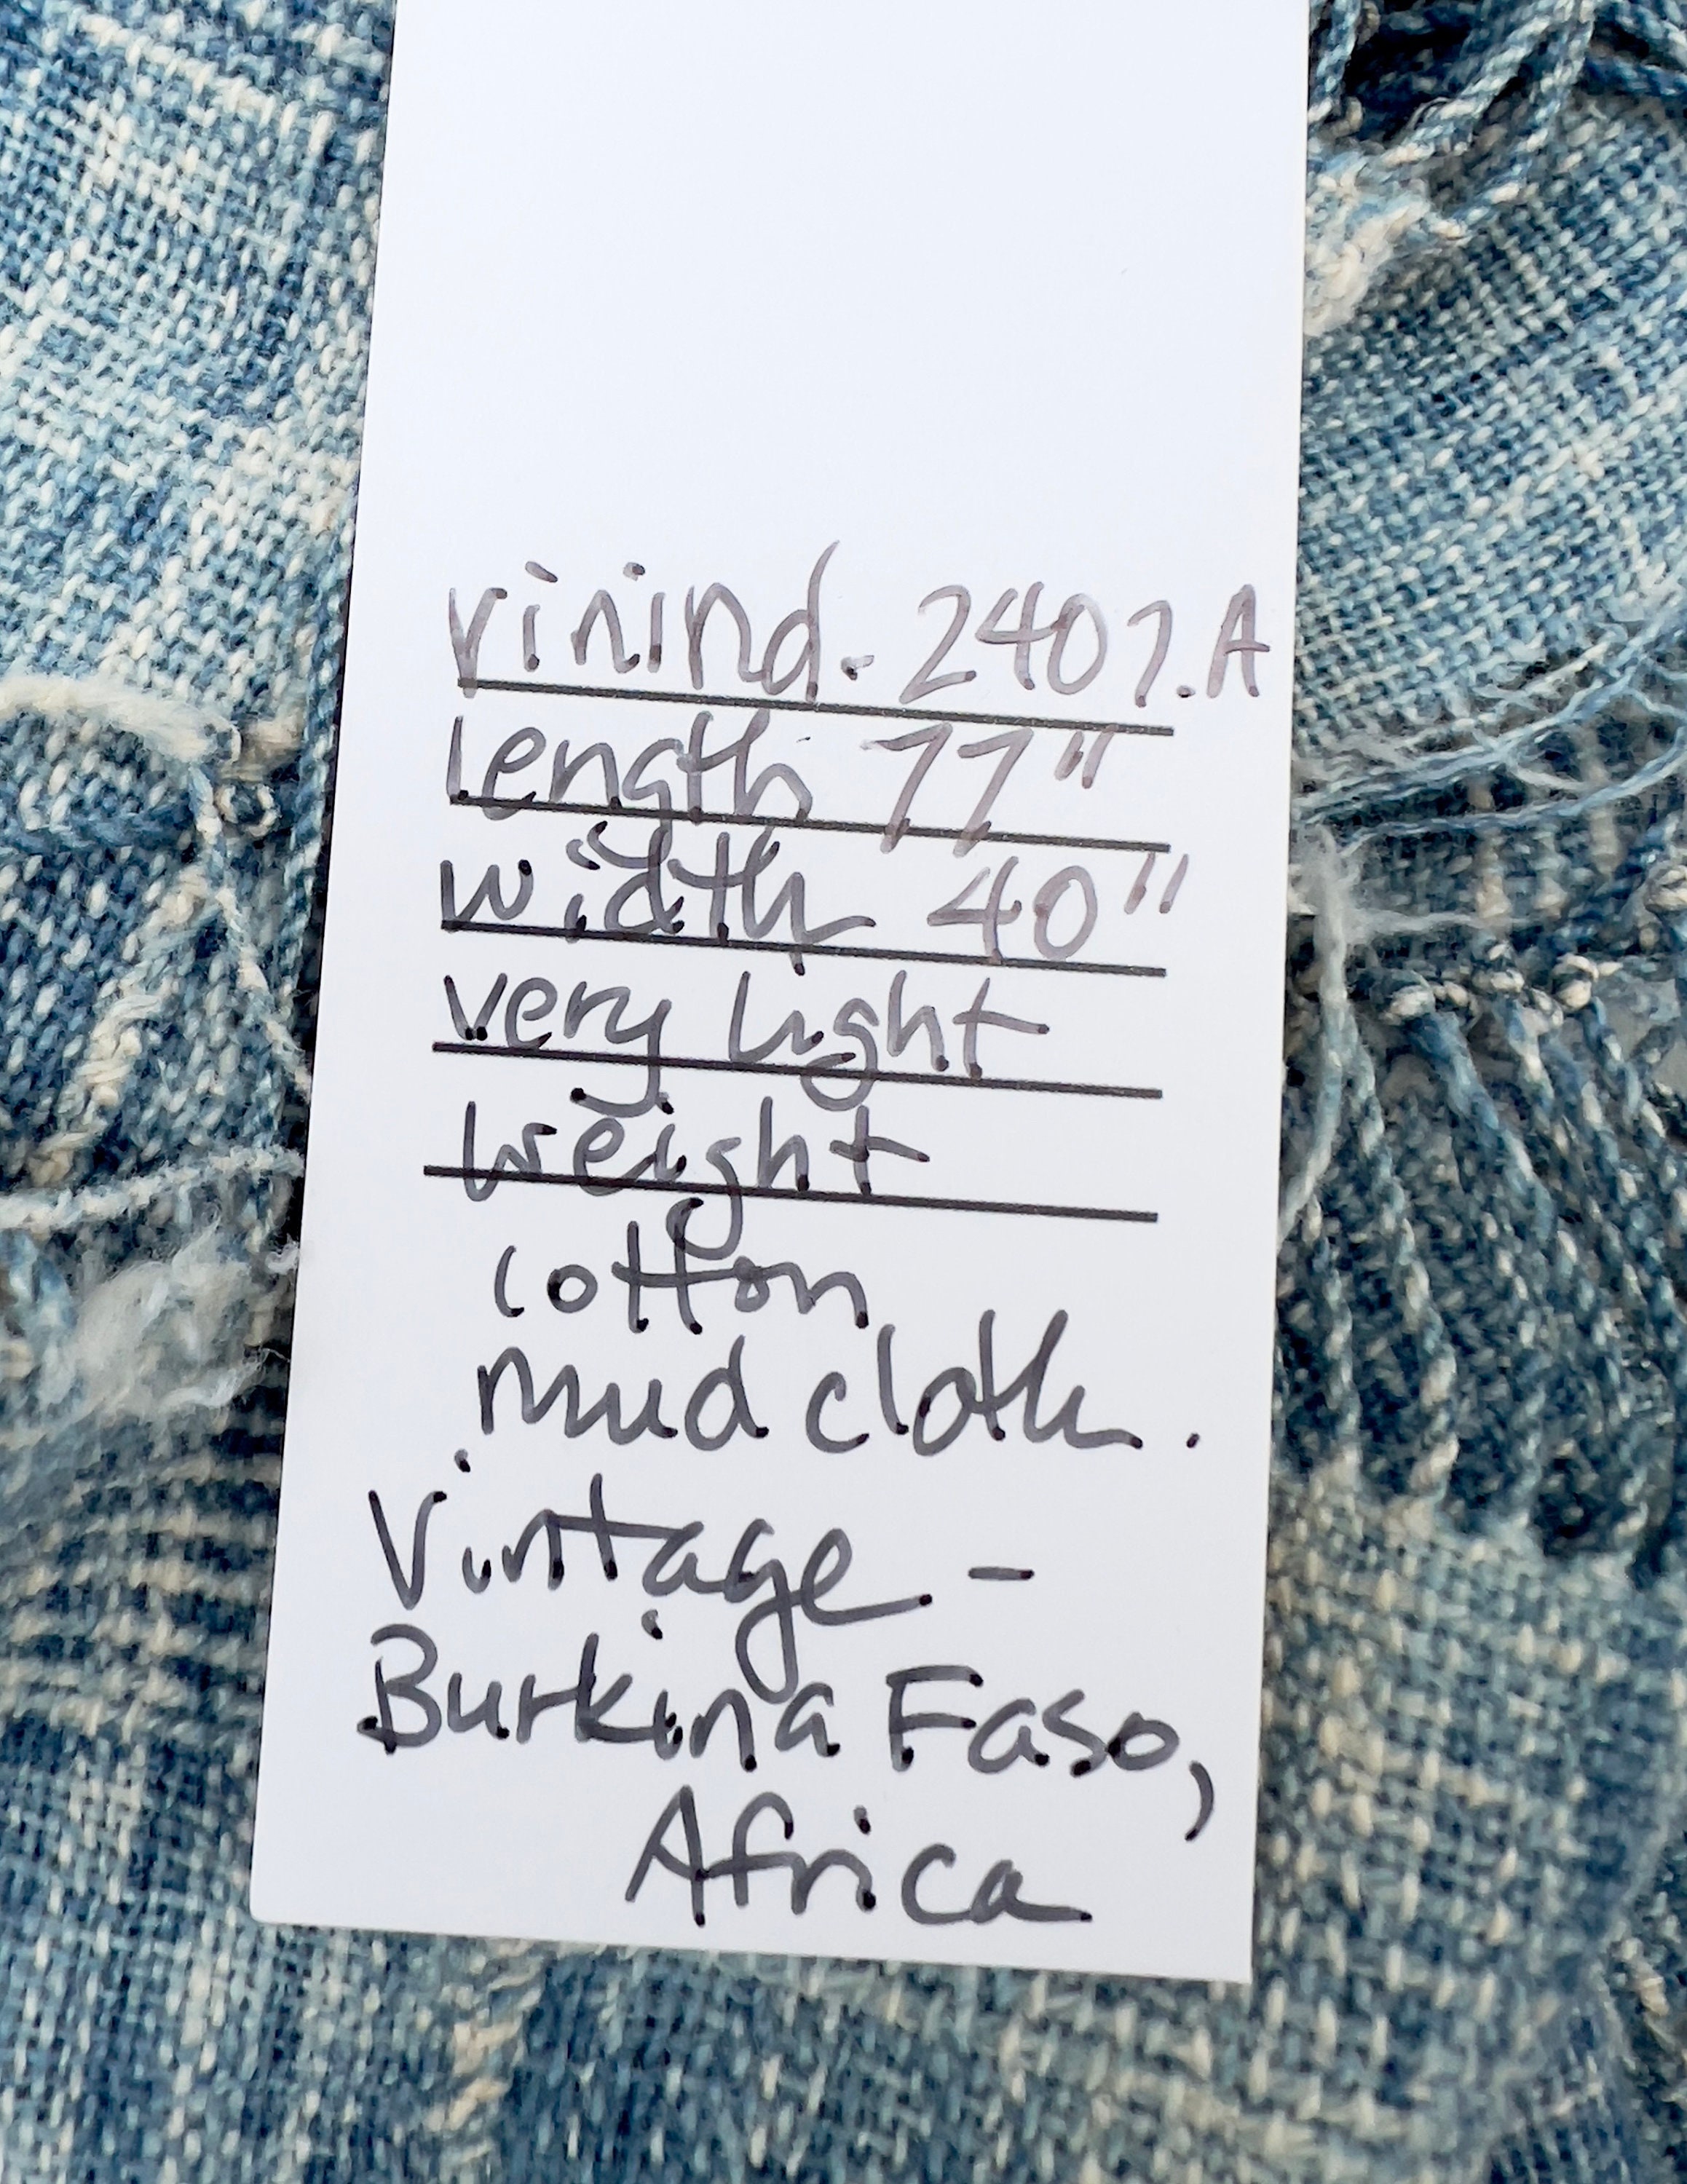 vinind. 2407.A
length 77"
width 40"
very light
weight
cotton
mud cloth.
Vintage -
Burkina Faso,
Africa